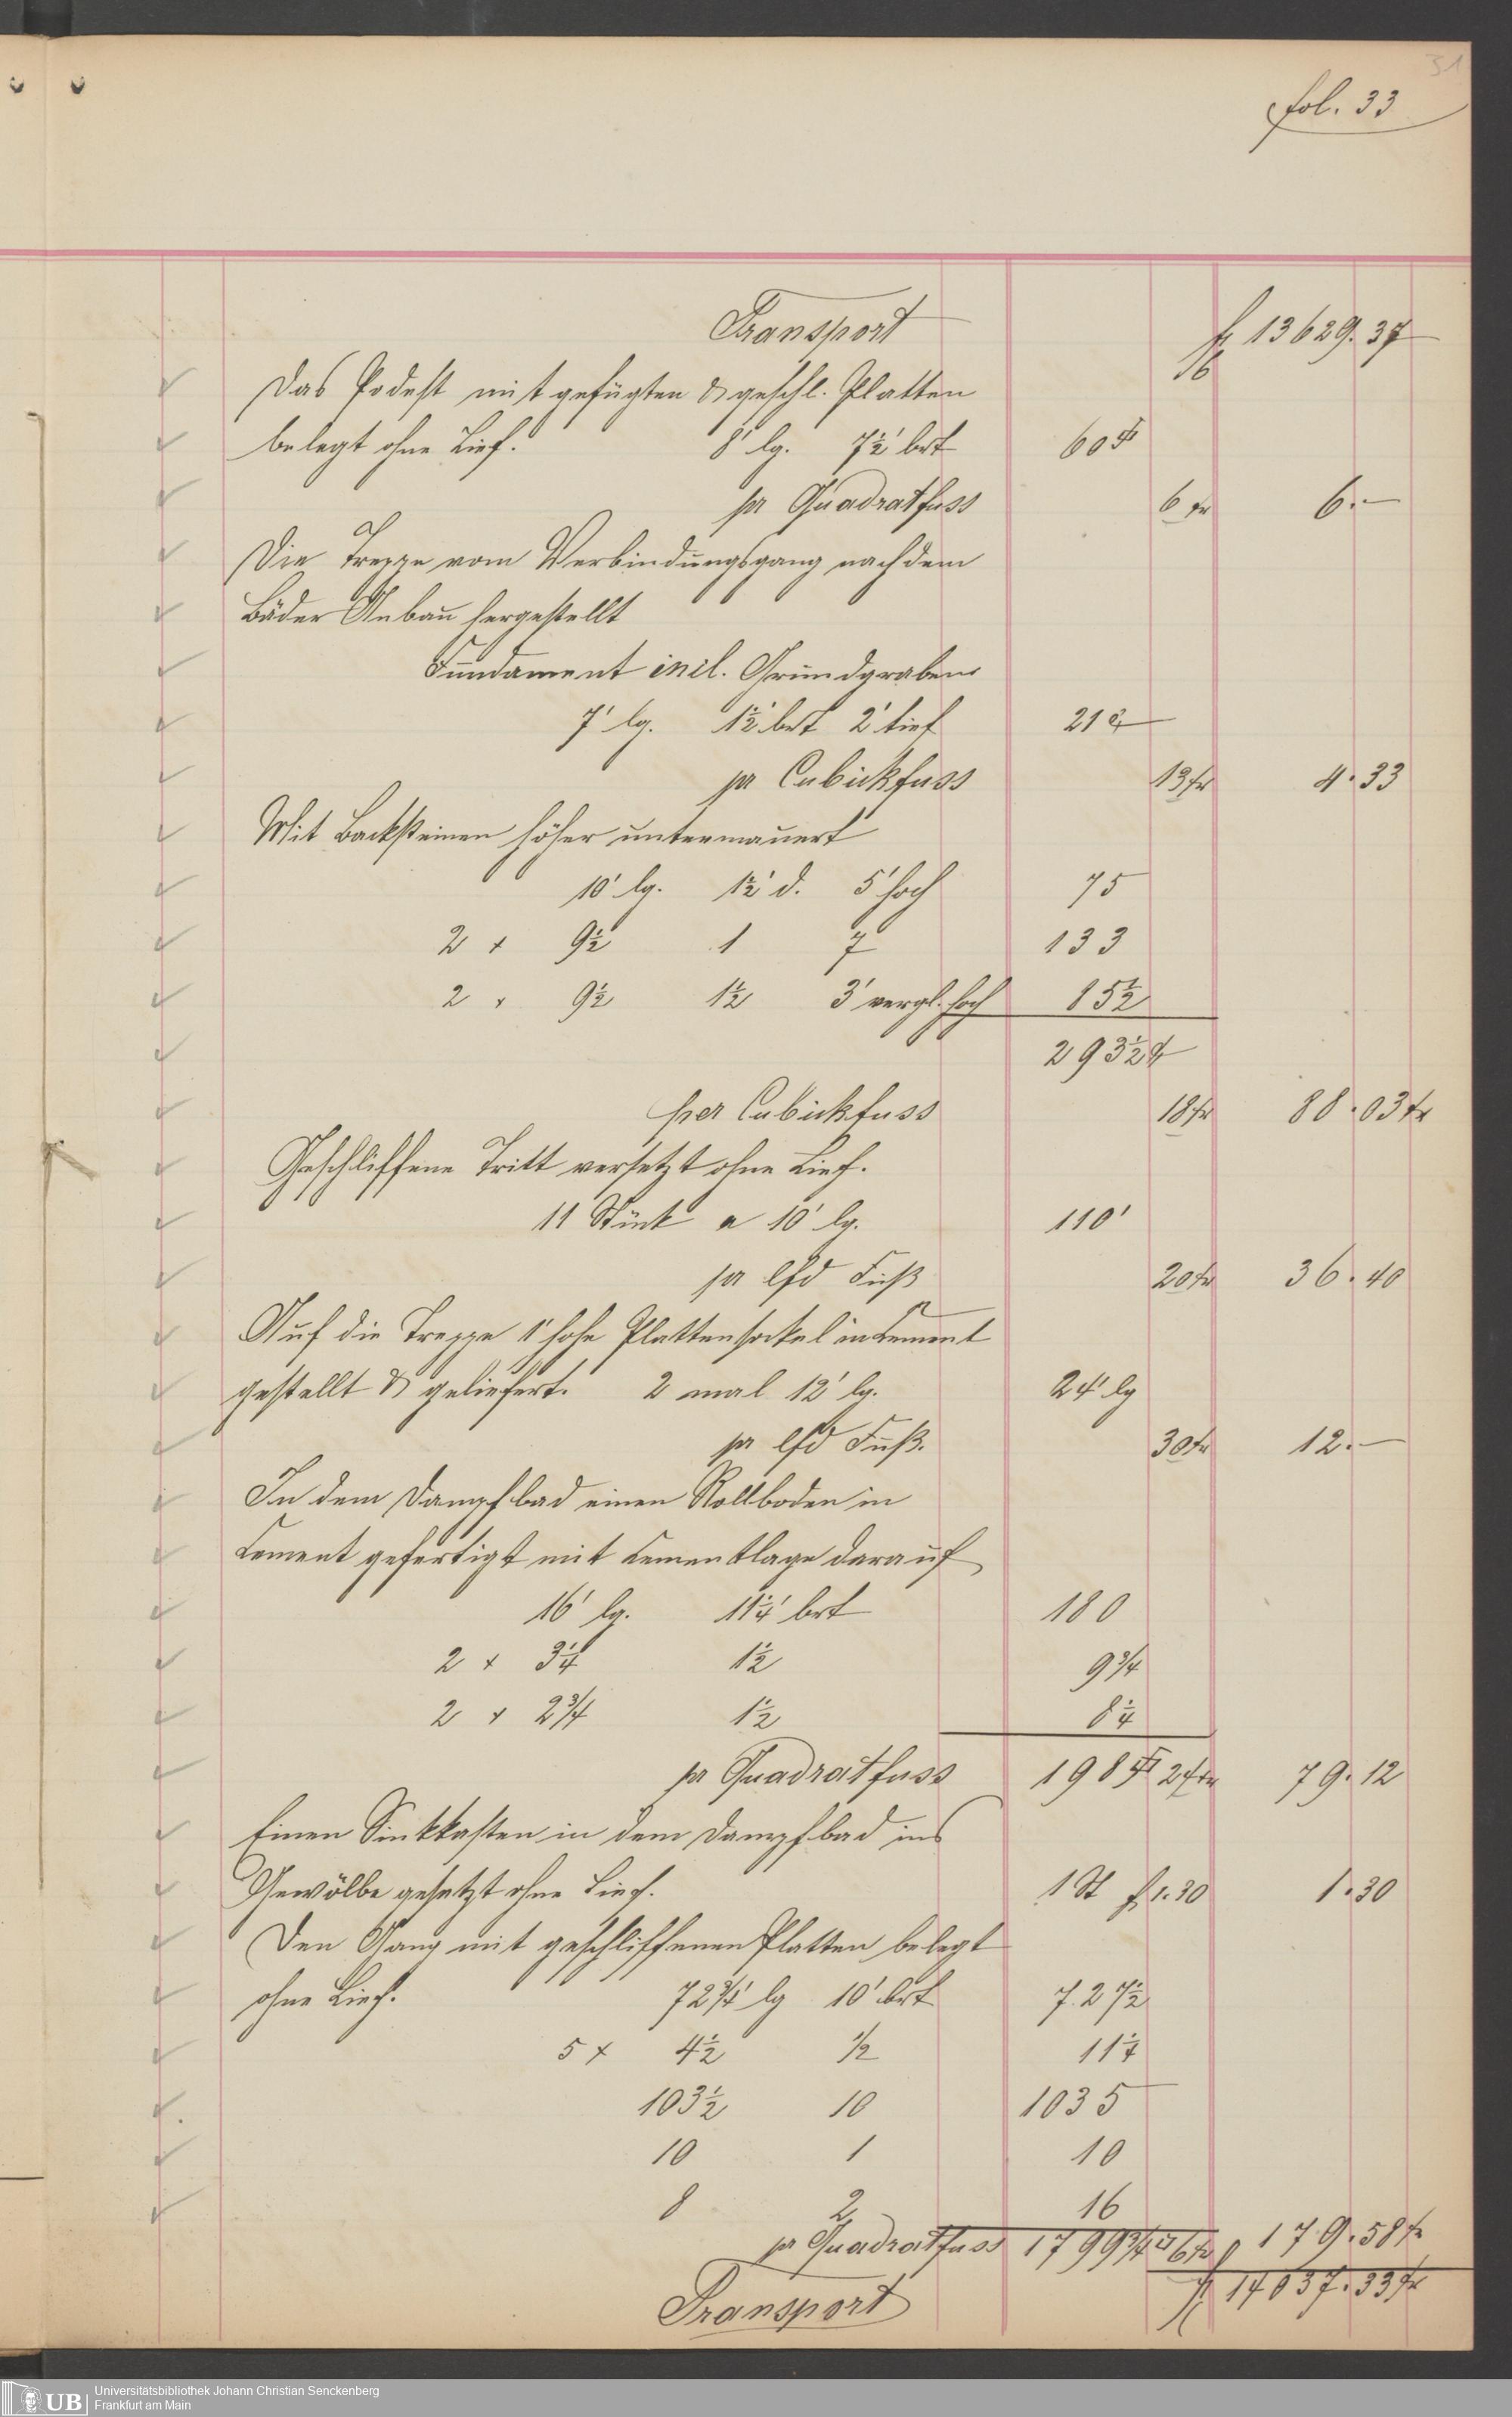 31
fol. 33
Transport f 13629. 37
Das Podest mit gefügten & geschl. Platten
belegt ohne Lief. 8' lg. 7½' brt 60□'
pr Quadratfuss 6 kr 6.—
Die Treppe vom Verbindungsgang nach dem
Bäder Anbau hergestellt
Fundament incl. Grundgraben
7' lg. 1½' brt 2' tief 21 c'
pr Cubickfuss 13 kr 4. 33
Mit Backsteinen höher untermauert
10' lg. 1½' d. 5' hoch 75
2 x 9½ 1 7 133
2 x 9½ 1½ 3' vergl. hoch 85½
293½ c'
per Cubickfuss 18 kr 88. 03 kr
Geschliffene Tritt versetzt ohne Lief.
11 Stück a 10' lg. 110'
pr lfd Fuß 20 kr 36. 40
Auf die Treppe 1' hohe Plattensockel in Cement
gestellt & geliefert. 2 mal 12' lg. 24' lg
pr lfd Fuß. 30 kr 12.—
In dem Dampfbad einen Rollboden in
Cement gefertigt mit Cementlage darauf
16' lg. 11¼' brt 180
2 x 3¼ 1½ 9¾
2 x 2¾ 1½ 8¼
pr Quadratfuss 198□' 24 kr 79. 12
Einen Sinkkasten in dem Dampfbad ins
Gewölbe gesetzt ohne Lief. 1 St f 1. 30 1. 30
Den Gang mit geschliffenen Platten belegt
ohne Lief. 72¾' lg 10' brt 727½
5 x 4½ ½ 11¼
103½ 10 1035
10 1 10
8 2 16
pr Quadratfuss 1799¾□' 6 kr 179. 58 kr
Transport f 14037. 33 kr
UB Universitätsbibliothek Johann Christian Senckenberg
Frankfurt am Main